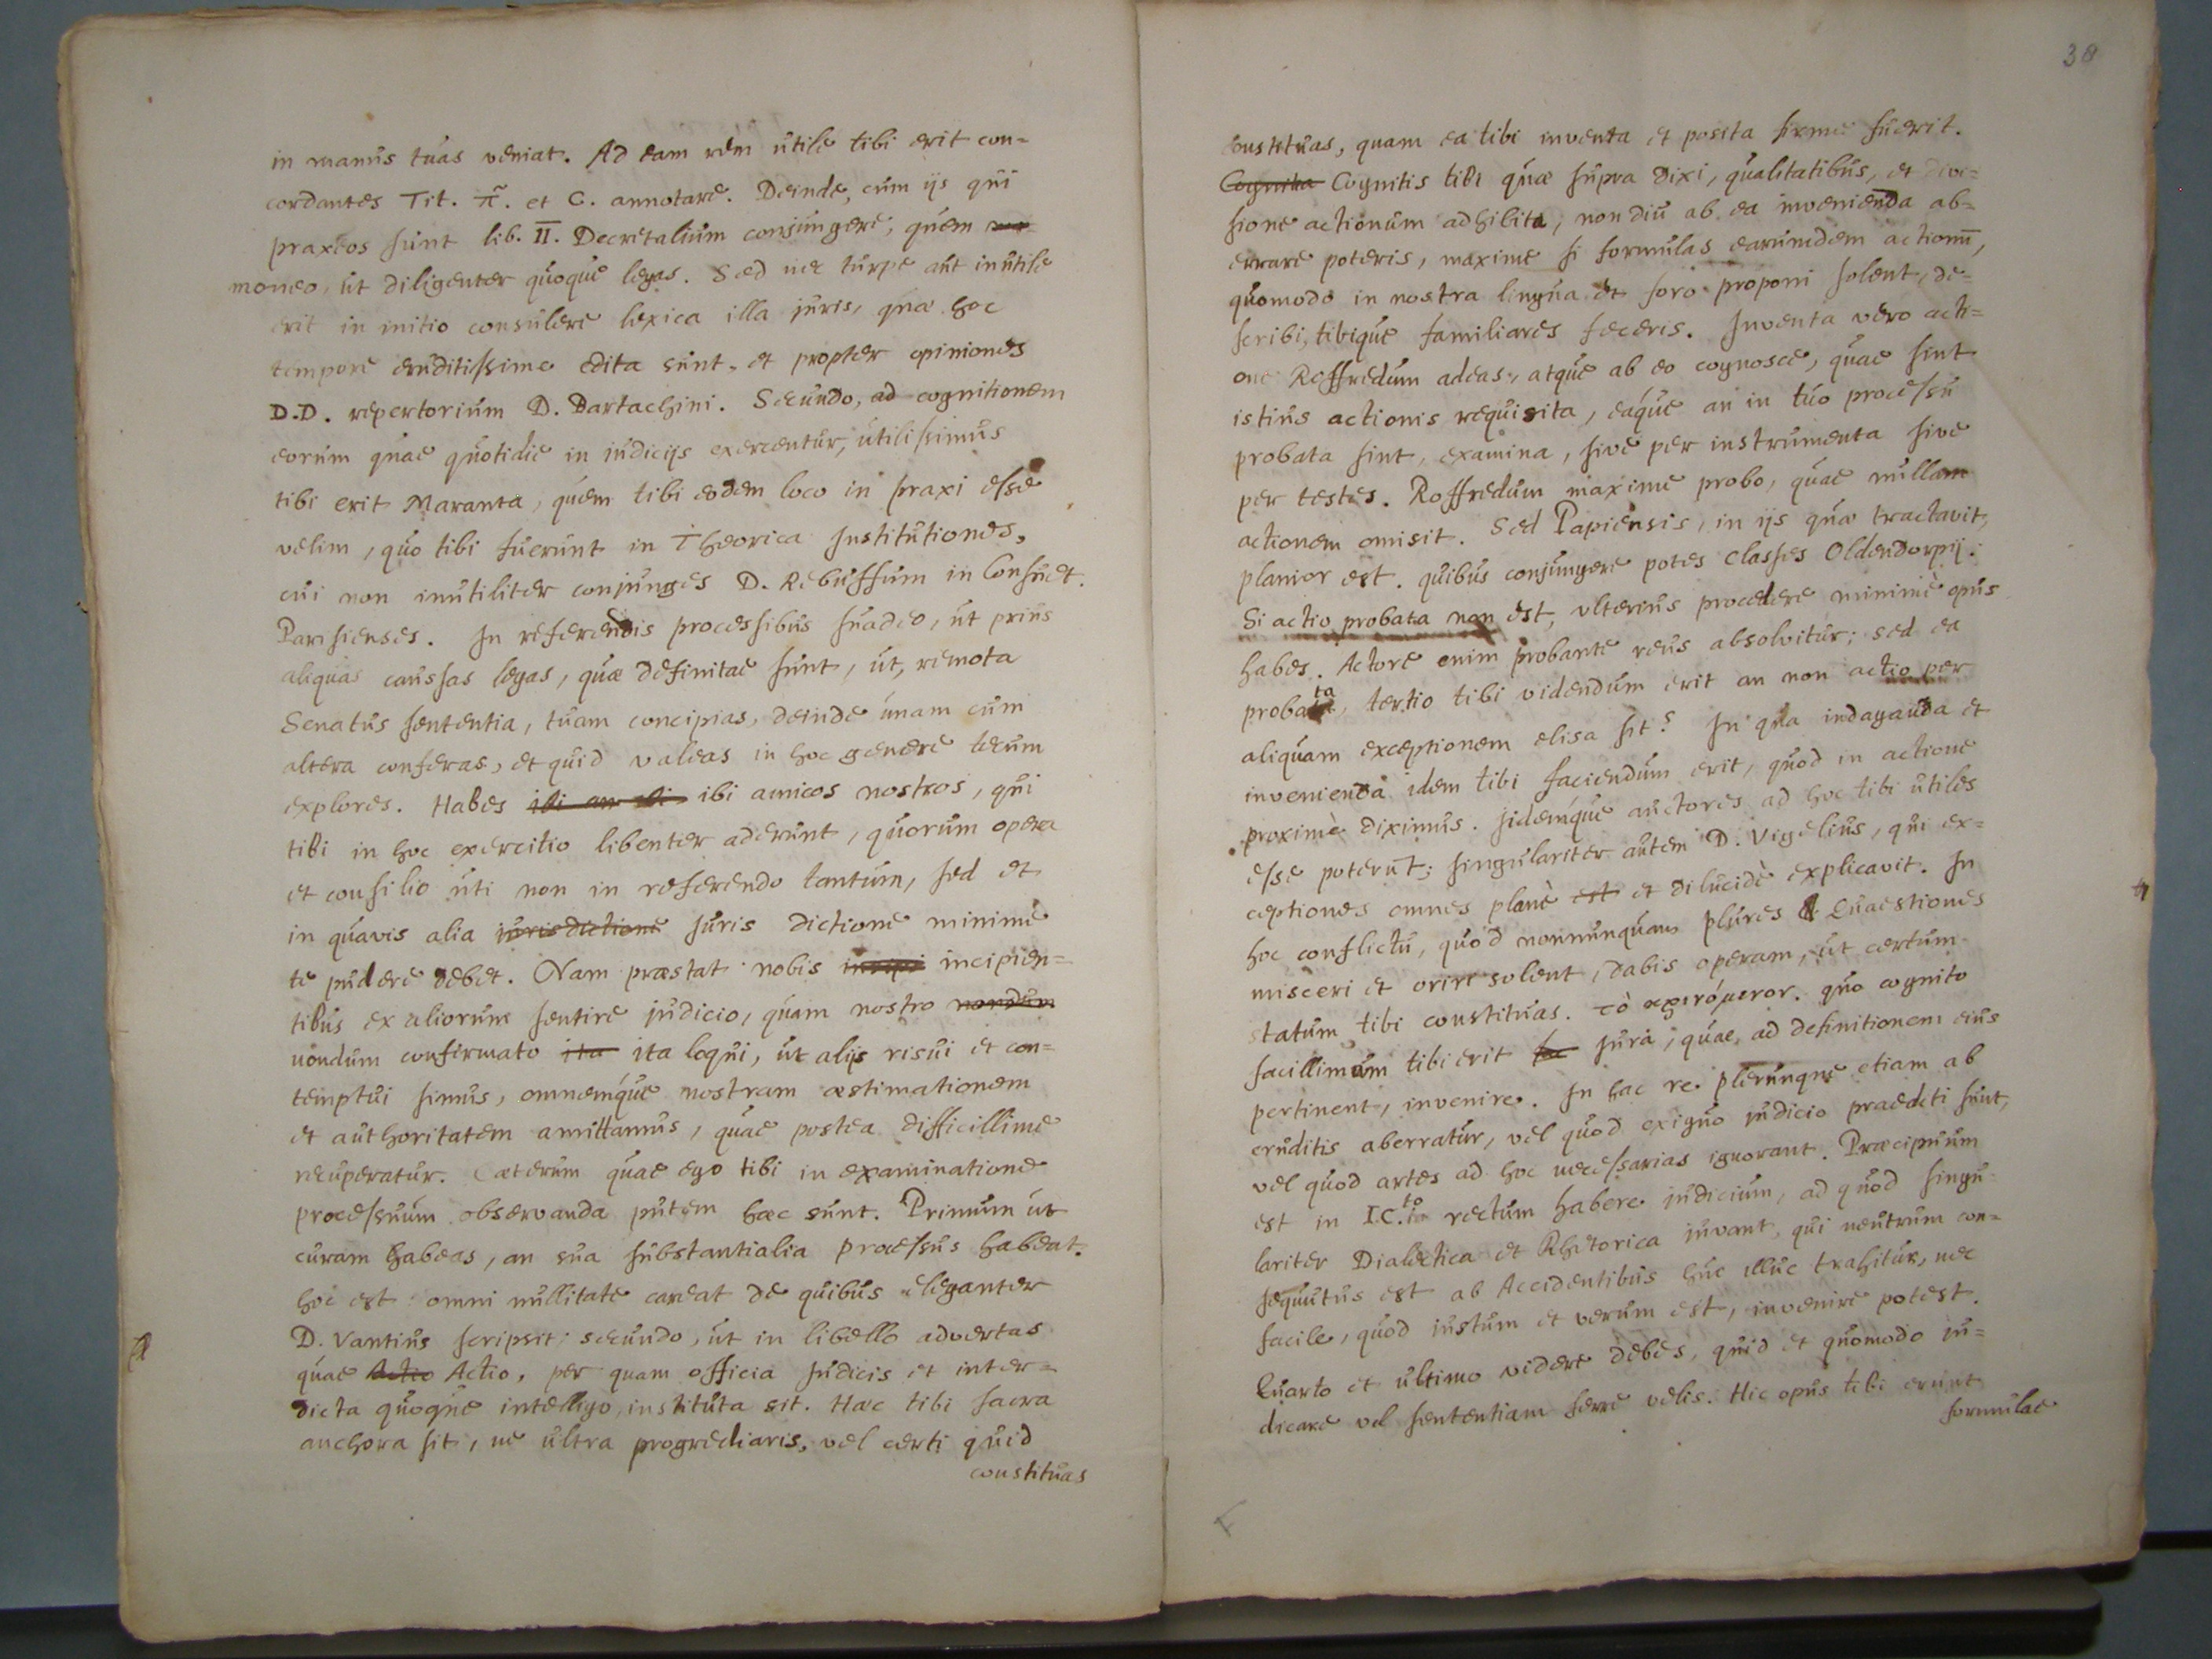 in manus tuas veniat. Ad eam rem utile tibi erit con=
cordantes Tit. π̃. et C. annotare. Deinde, cum ijs qui
praxeos sunt lib. II. Decretalium conjungere, quem
moneo, ut diligenter quoque legas. Sed nec turpe aut inutile
erit in initio consulere lexica illa juris, quæ hoc
tempore eruditissime edita sunt, et propter opiniones
D.D. repertorium D. Bartachini. Secundo, ad cognitionem
eorum quae quotidie in judicijs exercentur, utilissimus
tibi erit Maranta, quem tibi eodem loco in praxi esse
velim, quo tibi fuerunt in Theorica Institutiones,
cui non inutiliter conjunges D. Rebuffum in Consuet.
Parisienses. In referendis processibus suadeo, ut prius
aliquas caussas legas, quæ definitae sunt, ut, remota
Senatus sententia, tuam concipias, deinde unam cum
altera conferas, et quid valeas in hoc genere tecum
explores. Habes ibi amicos nostros, qui
tibi in hoc exercitio libenter aderunt, quorum opera
et consilio uti non in referendo tantum, sed et
in quavis alia jurisdictione Juris dictione minime
te pudere debet. Nam præstat nobis incipi incipien=
tibus ex aliorum sentire judicio, quam nostro nondum
nondum confirmato ita ita loqui, ut alijs risui et con=
temptui simus, omnemque nostram æstimationem
et authoritatem amittamus, quae postea difficillime
recuperatur. Cæterum quae ego tibi in examinatione
processuum observanda putem hæc sunt. Primum ut
curam habeas, an sua substantialia processus habeat.
hoc est omni nullitate careat de quibus eleganter
D. Vantius scripsit; secundo, ut in libello advertas
quae Actio Actio, per quam officia Judicis et inter=
dicta quoque intelligo, instituta sit. Hæc tibi sacra
anchora sit, ne ultra progrediaris, vel certi quid
constituas
38
constituas, quam ea tibi inventa et posita firme fuerit.
Cognita Cognitis tibi quæ supra dixi, qualitatibus, et divi=
sione actionum adhibita, non diu ab ea invenienda ab=
errare poteris, maxime si formulas earumdem actionū,
quomodo in nostra lingua et foro proponi solent, de=
scribi, tibique familiares feceris. Inventa vero acti=
one Roffredum adeas, atque ab eo cognosce, quae sint
istius actionis requisita, eaque an in tuo processu
probata sint, examina, sive per instrumenta sive
per testes. Roffredum maxime probo, quae nullam
actionem omisit. Sed Papiensis, in ijs quæ tractavit,
planior est. quibus conjungere potes Classes Oldendorpij.
Si actio probata non est, ulterius procedere minimè opus
habes. Actore enim probante reus absolvitur; sed ea
probata, tertio tibi videndum erit an non actio per
aliquam exceptionem elisa sit? In qua indaganda et
invenienda idem tibi faciendum erit, quod in actione
proximè diximus. Jidemque auctores ad hoc tibi utiles
esse poterūt; singulariter autem D. Vigelius, qui ex=
ceptiones omnes planè est et dilucidè explicavit. In
hoc conflictu, quod nonnunquam plures Quaestiones
misceri et oriri solent, dabis operam, ut certum
statum tibi constituas. τὸ κρινόμενον. quo cognito
facillimum tibi erit Jura, quae ad definitionem eius
pertinent, invenire. In hac re plerunque etiam ab
eruditis aberratur, vel quod exiguo judicio praediti sunt,
vel quod artes ad hoc necessarias ignorant. Præcipuum
est in I.C.to rectum habere judicium, ad quod singu=
lariter Dialectica et Rhetorica juvant, qui neutrum con=
sequutus est ab Accidentibus huc illuc trahitur, nec
facile, quod justum et verum est, invenire potest.
Quarto et ultimo videre debes, quid et quomodo ju=
dicare vel sententiam ferre velis. Hic opus tibi erunt
formulae